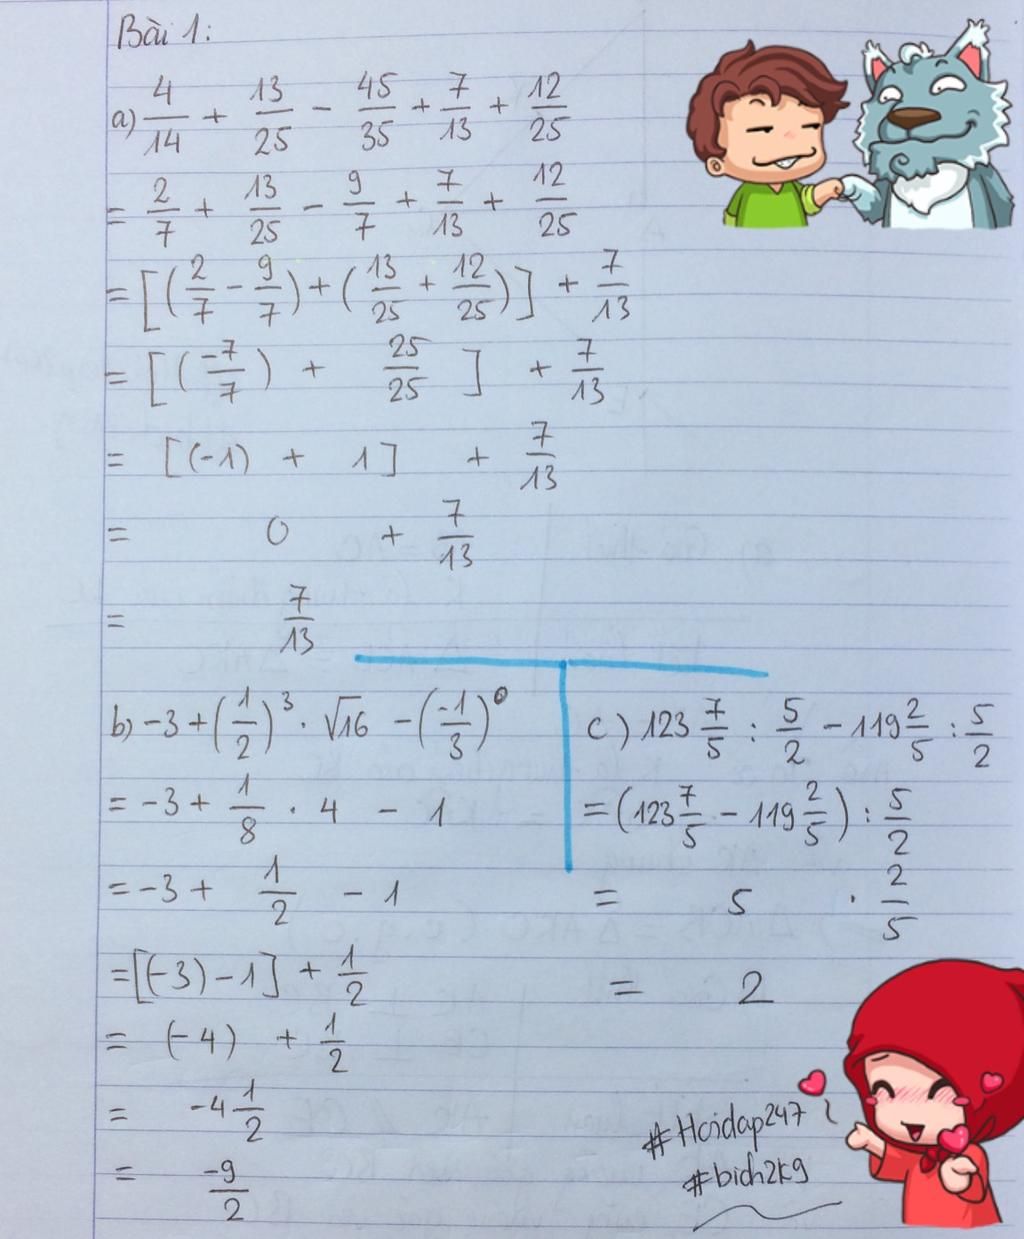 Bài 1:
a) 4/14 + 13/25 - 45/35 + 7/13 + 12/25
= 2/7 + 13/25 - 9/7 + 7/13 + 12/25
= [(2/7 - 9/7) + (13/25 + 12/25)] + 7/13
= [(-7/7) + 25/25] + 7/13
= [(-1) + 1] + 7/13
= 0 + 7/13
= 7/13
b) -3 + (1/2)³ · √16 - (-1/3)⁰
= -3 + 1/8 · 4 - 1
= -3 + 1/2 - 1
= [(-3) - 1] + 1/2
= (-4) + 1/2
= -4 1/2
= -9/2
c) 123 7/5 : 5/2 - 119 2/5 : 5/2
= (123 7/5 - 119 2/5) : 5/2
= 5 · 2/5
= 2
#Hoidap247
#bich2k9